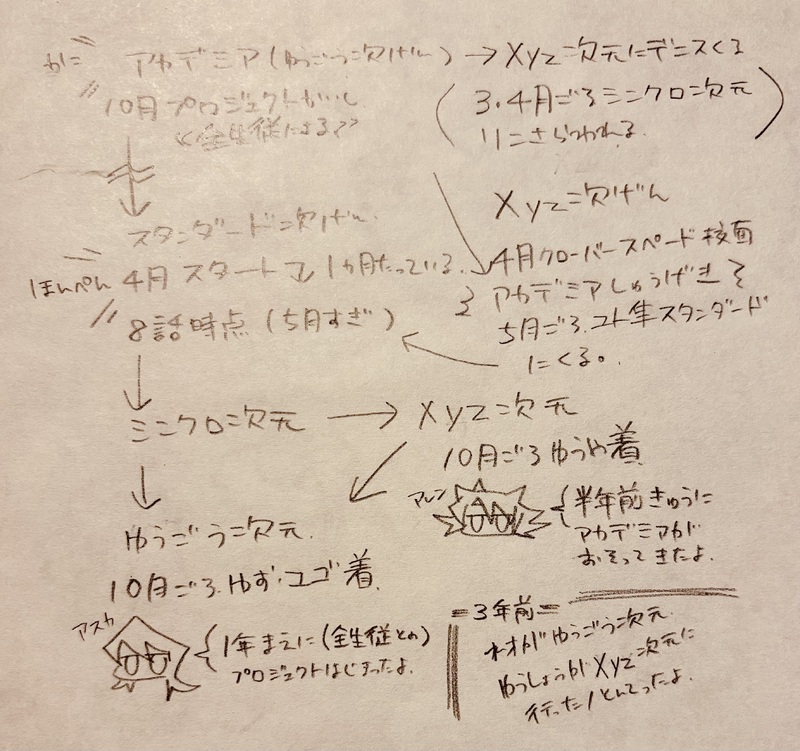 アカデミア(ゆうごう次げん)→Xyz次元にデニスくる
10月プロジェクトかいし
(3.4月ごろシンクロ次元
リンさらわれる)
<<全生従による>>
スタンダード次げん
Xyz次げん
ほんぺん 4月スタート 1ヵ月たっている
8話時点(5月すぎ)
4月クローバースペード校面
アカデミアしゅうげき
5月ごろ.ユト隼スタンダード
にくる。
シンクロ次元→Xyz次元
10月ごろゆうや着
アレン
半年前きゅうに
アカデミアが
おそってきたよ.
ゆうごう次元.
10月ごろ.ゆず・ユゴ着
アスカ
1年まえに(全生従との)
プロジェクトはじまったよ.
=3年前=
ゆうごう次元.
ゆうしょうがXyz次元に
行った/とんでったよ.